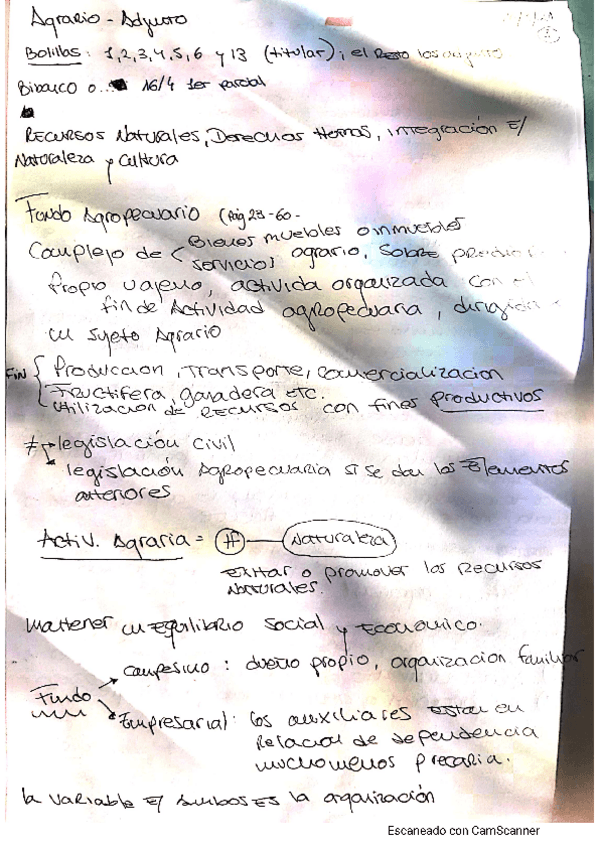 Agrario - Adjunto
Bolillas: 1,2,3,4,5,6 y 13 (titular); el Resto los adjunto
16/4 1er parcial
Recursos Naturales, Derechos Homos, integración E/
Naturaleza y cultura
Fundo Agropecuario (Pág 28-60-
Complejo de Bienes muebles o inmuebles
servicios agrario, sobre predio
propio o ajeno, activida organizada con el
fin de Actividad agropecuaria,
un sujeto Agrario
FIN Produccion, Transporte, comercialización
Fructifera, ganadera etc.
utilización de Recursos con fines productivos
≠ legislación civil
legislación Agropecuaria si se dan los Elementos
anteriores
Activ. Agraria = H Naturaleza
o promover los Recursos
Naturales.
Mantener un Equilibrio social y Economico.
Fundo
campesino: dueño propio, organización familiar
Empresarial: los auxiliares estan en
Relacion de dependencia
mucho menos precaria.
la variable E/ ambos es la organización
Escaneado con CamScanner